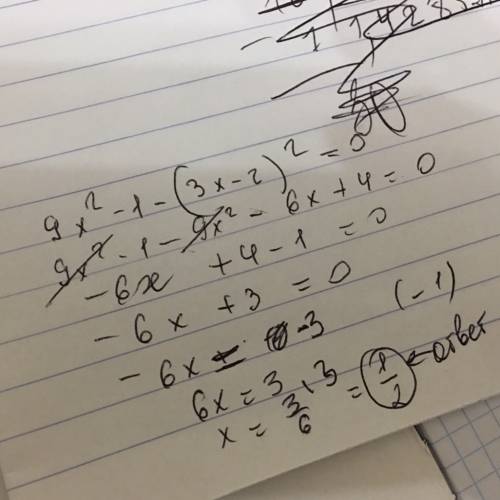 9x² - 1 - (3x - 2)² = 0
9x² - 1 - 9x² - 6x + 4 = 0
- 6x + 4 - 1 = 0
- 6x + 3 = 0
- 6x = -3 (-1)
6x = 3
x = 3/6 = 1/2 ← ответ